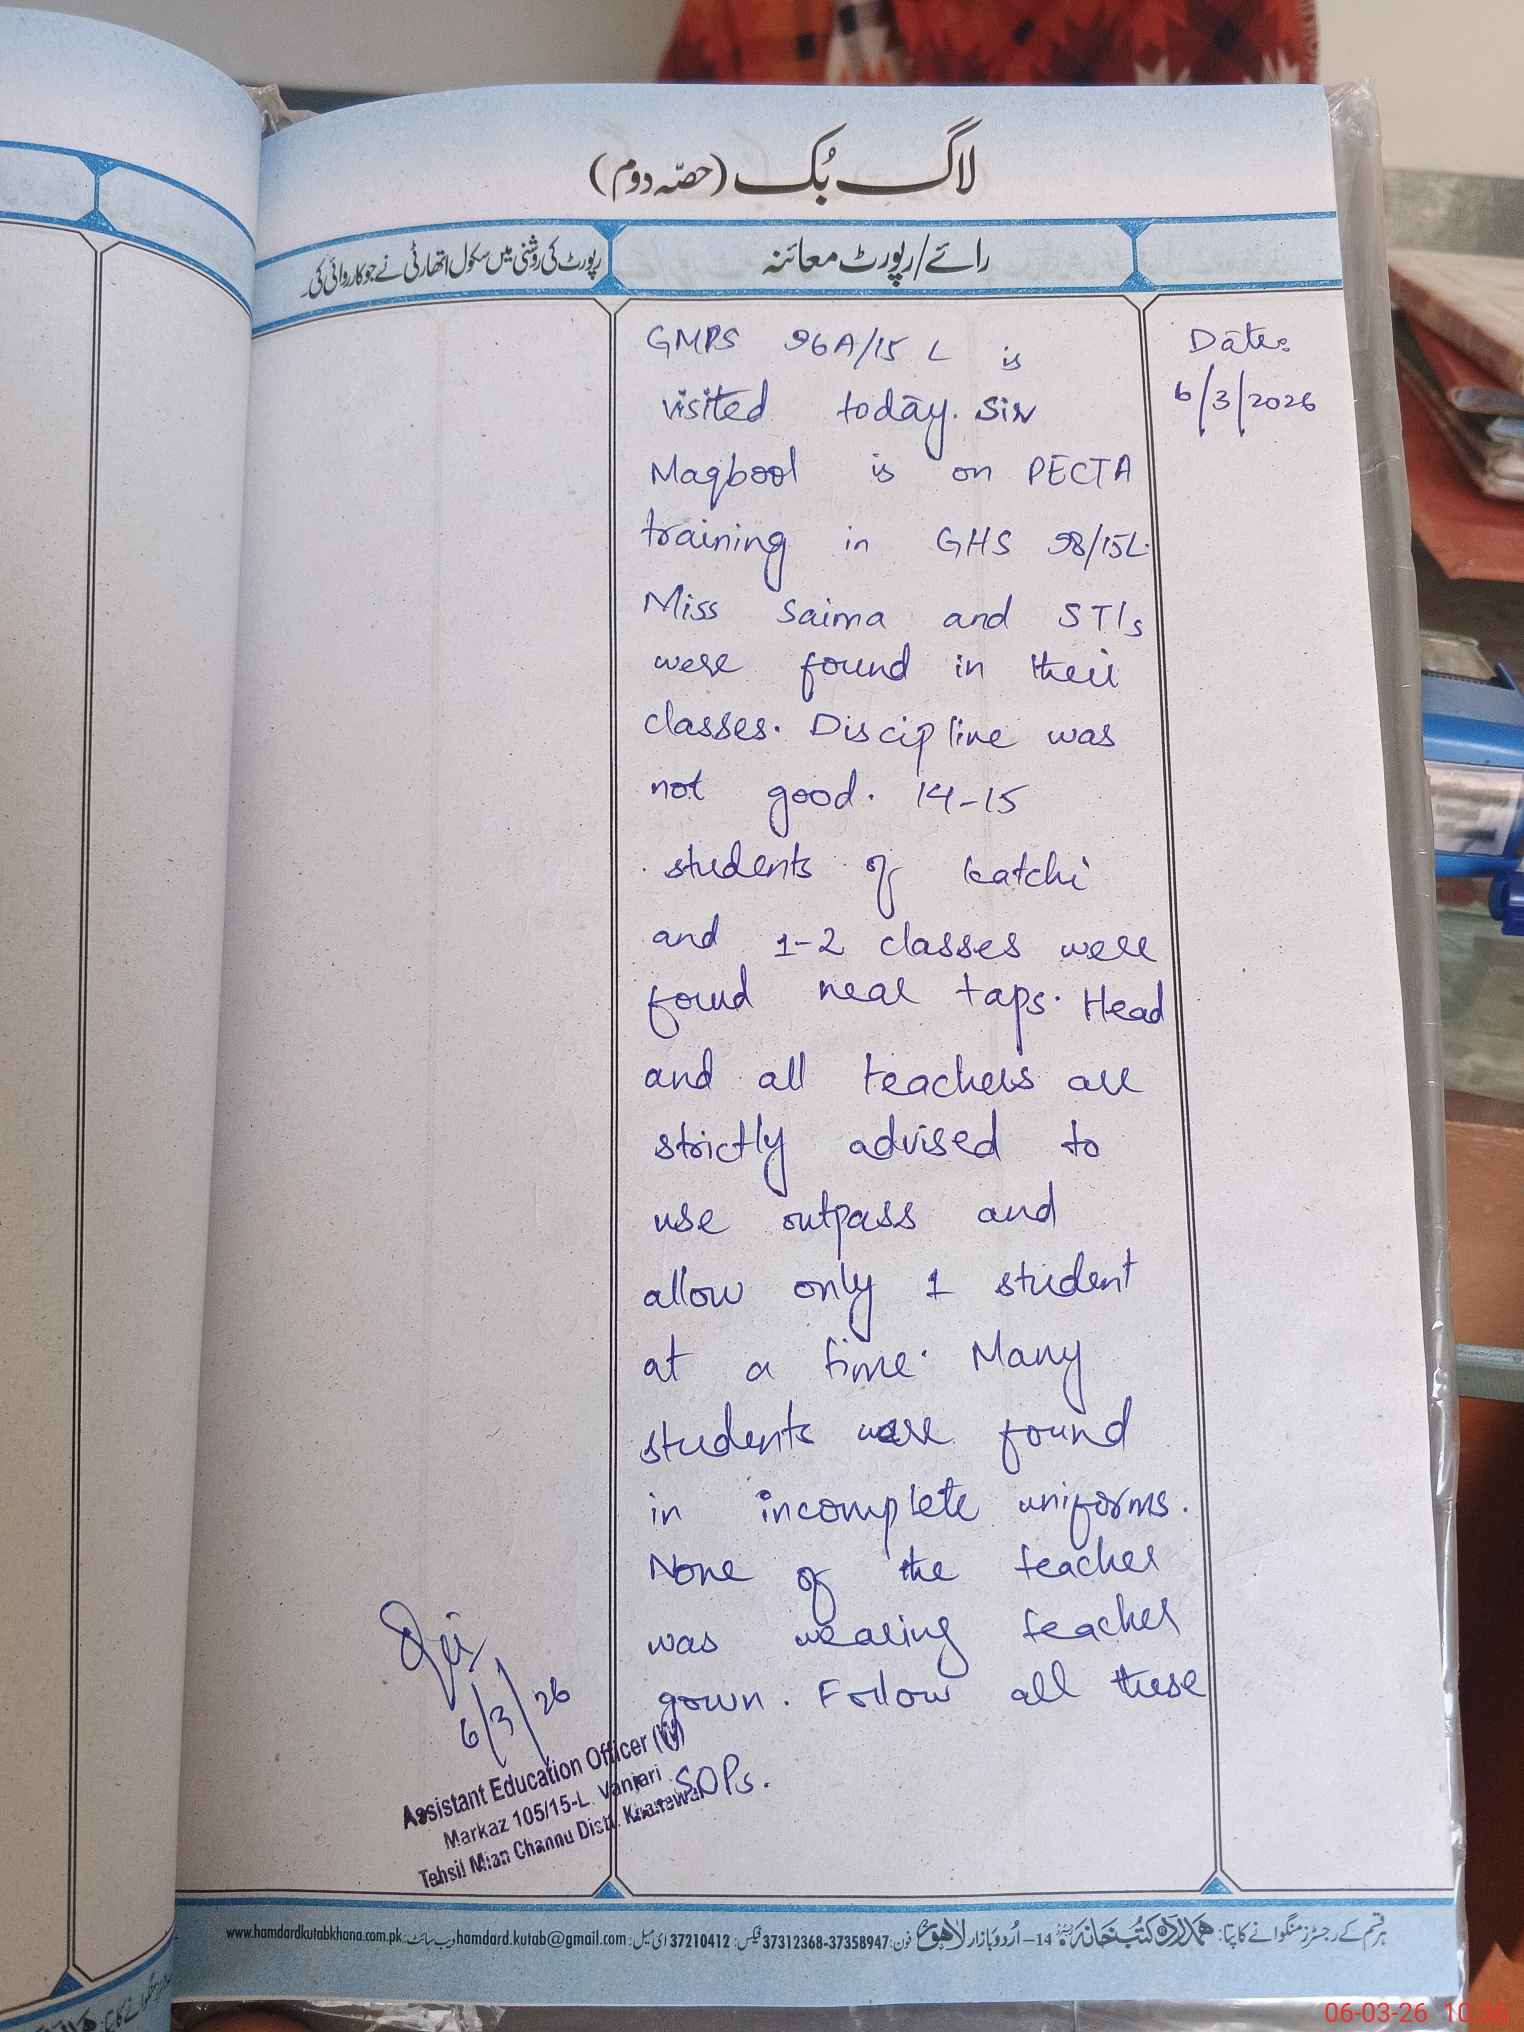 لاگ بُک (حصّہ دوم)
رائے/رپورٹ معائنہ
رپورٹ کی روشنی میں سکول اتھارٹی نے جو کارروائی کی۔
Date:
6/3/2026
GMPS 96A/15 L is
visited today. Sir
Maqbool is on PECTA
training in GHS 98/15L.
Miss Saima and STIs
were found in their
classes. Discipline was
not good. 14-15
students of katchi
and 1-2 classes were
found near taps. Head
and all teachers are
strictly advised to
use outpass and
allow only 1 student
at a time. Many
students were found
in incomplete uniforms.
None of the teacher
was wearing teacher
gown. Follow all these
SOPs.
6/3/26
Assistant Education Officer (W)
Markaz 105/15-L Vanjari
Tehsil Mian Channu Distt. Khanewal
ہر قسم کے رجسٹرز منگوانے کا پتا: ہمدرد کتب خانہ 14-اُردو بازار لاہور فون: 37312368-37358947 فیکس: 37210412 ای میل: hamdard.kutab@gmail.com ویب سائٹ: www.hamdardkutabkhana.com.pk
06-03-26